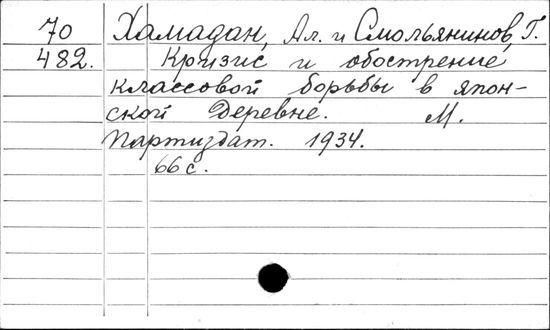 70 Хамадан, Ал. и Смольянинов, Г.
482. Кризис и обострение
классовой борьбы в япон-
ской деревне. М.
Партиздат. 1934.
66 с.